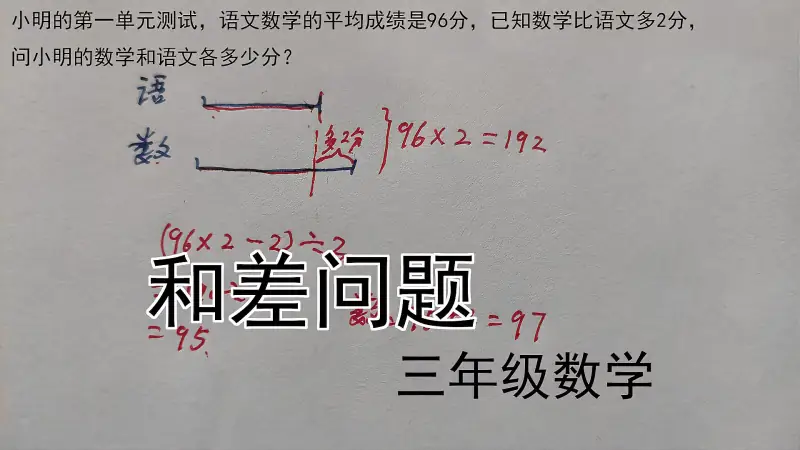 小明的第一单元测试，语文数学的平均成绩是96分，已知数学比语文多2分，
问小明的数学和语文各多少分？
语
数
多2分
96×2=192
(96×2-2)÷2
和差问题
=95.
=97
三年级数学